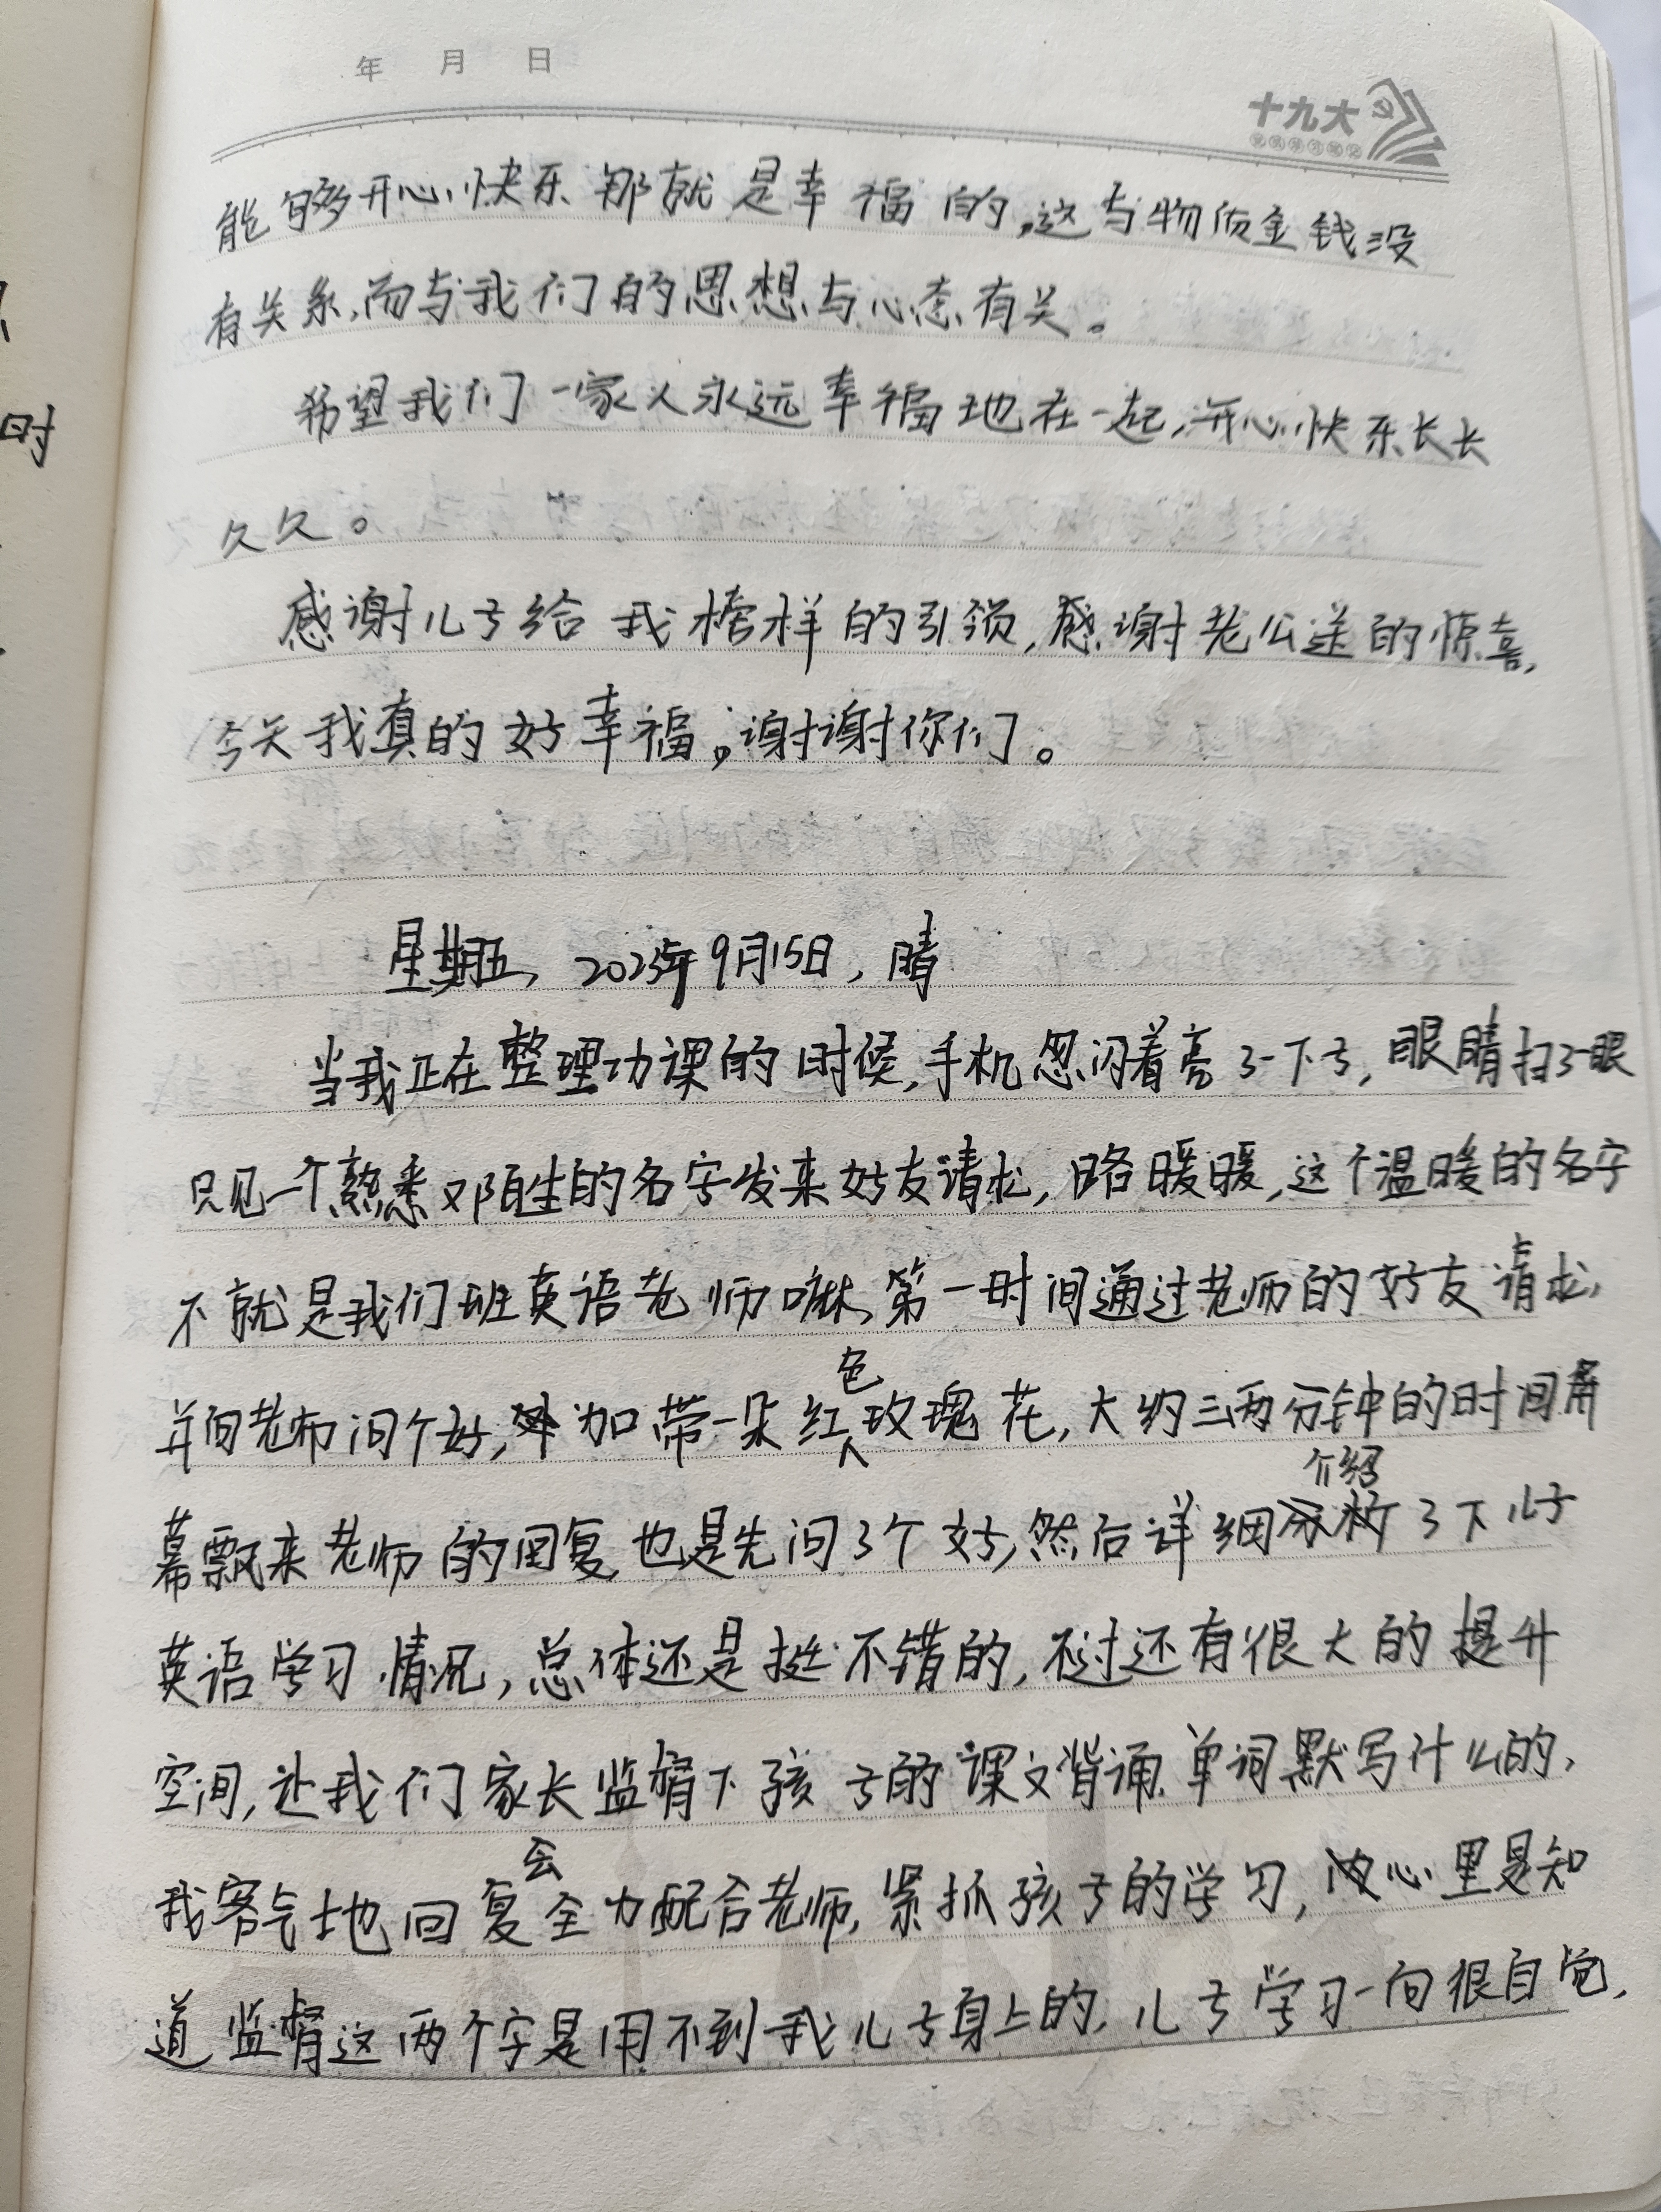 年 月 日
十九大
能够开心快乐那就是幸福的,这与物质金钱没
有关系,而与我们的思想与心态有关。
希望我们一家人永远幸福地在一起,开心快乐长长
久久。
感谢儿子给我榜样的引领,感谢老公送的惊喜,
今天我真的好幸福,谢谢你们。
星期五, 2023年9月15日, 晴
当我正在整理功课的时候,手机忽闪着亮了一下子,眼睛扫了眼
只见一个熟悉又陌生的名字发来好友请求,路暖暖,这个温暖的名字
不就是我们班英语老师嘛,第一时间通过老师的好友请求,
并向老师问个好,外加带一朵红色玫瑰花,大约三两分钟的时间屏
幕飘来老师的回复,也是先问了个好,然后详细介绍了下儿子
英语学习情况,总体还是挺不错的,不过还有很大的提升
空间,让我们家长监督下孩子的课文背诵,单词默写什么的,
我客气地回复会全力配合老师,紧抓孩子的学习,心里是知
道监督这两个字是用不到我儿子身上的,儿子学习一向很自觉,
时